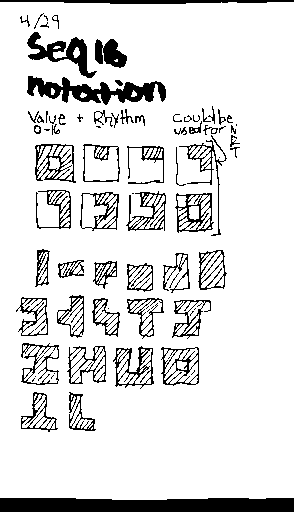 4/29
Seq16
notation
Value + Rhythm
0-16
Could be
used for
NET